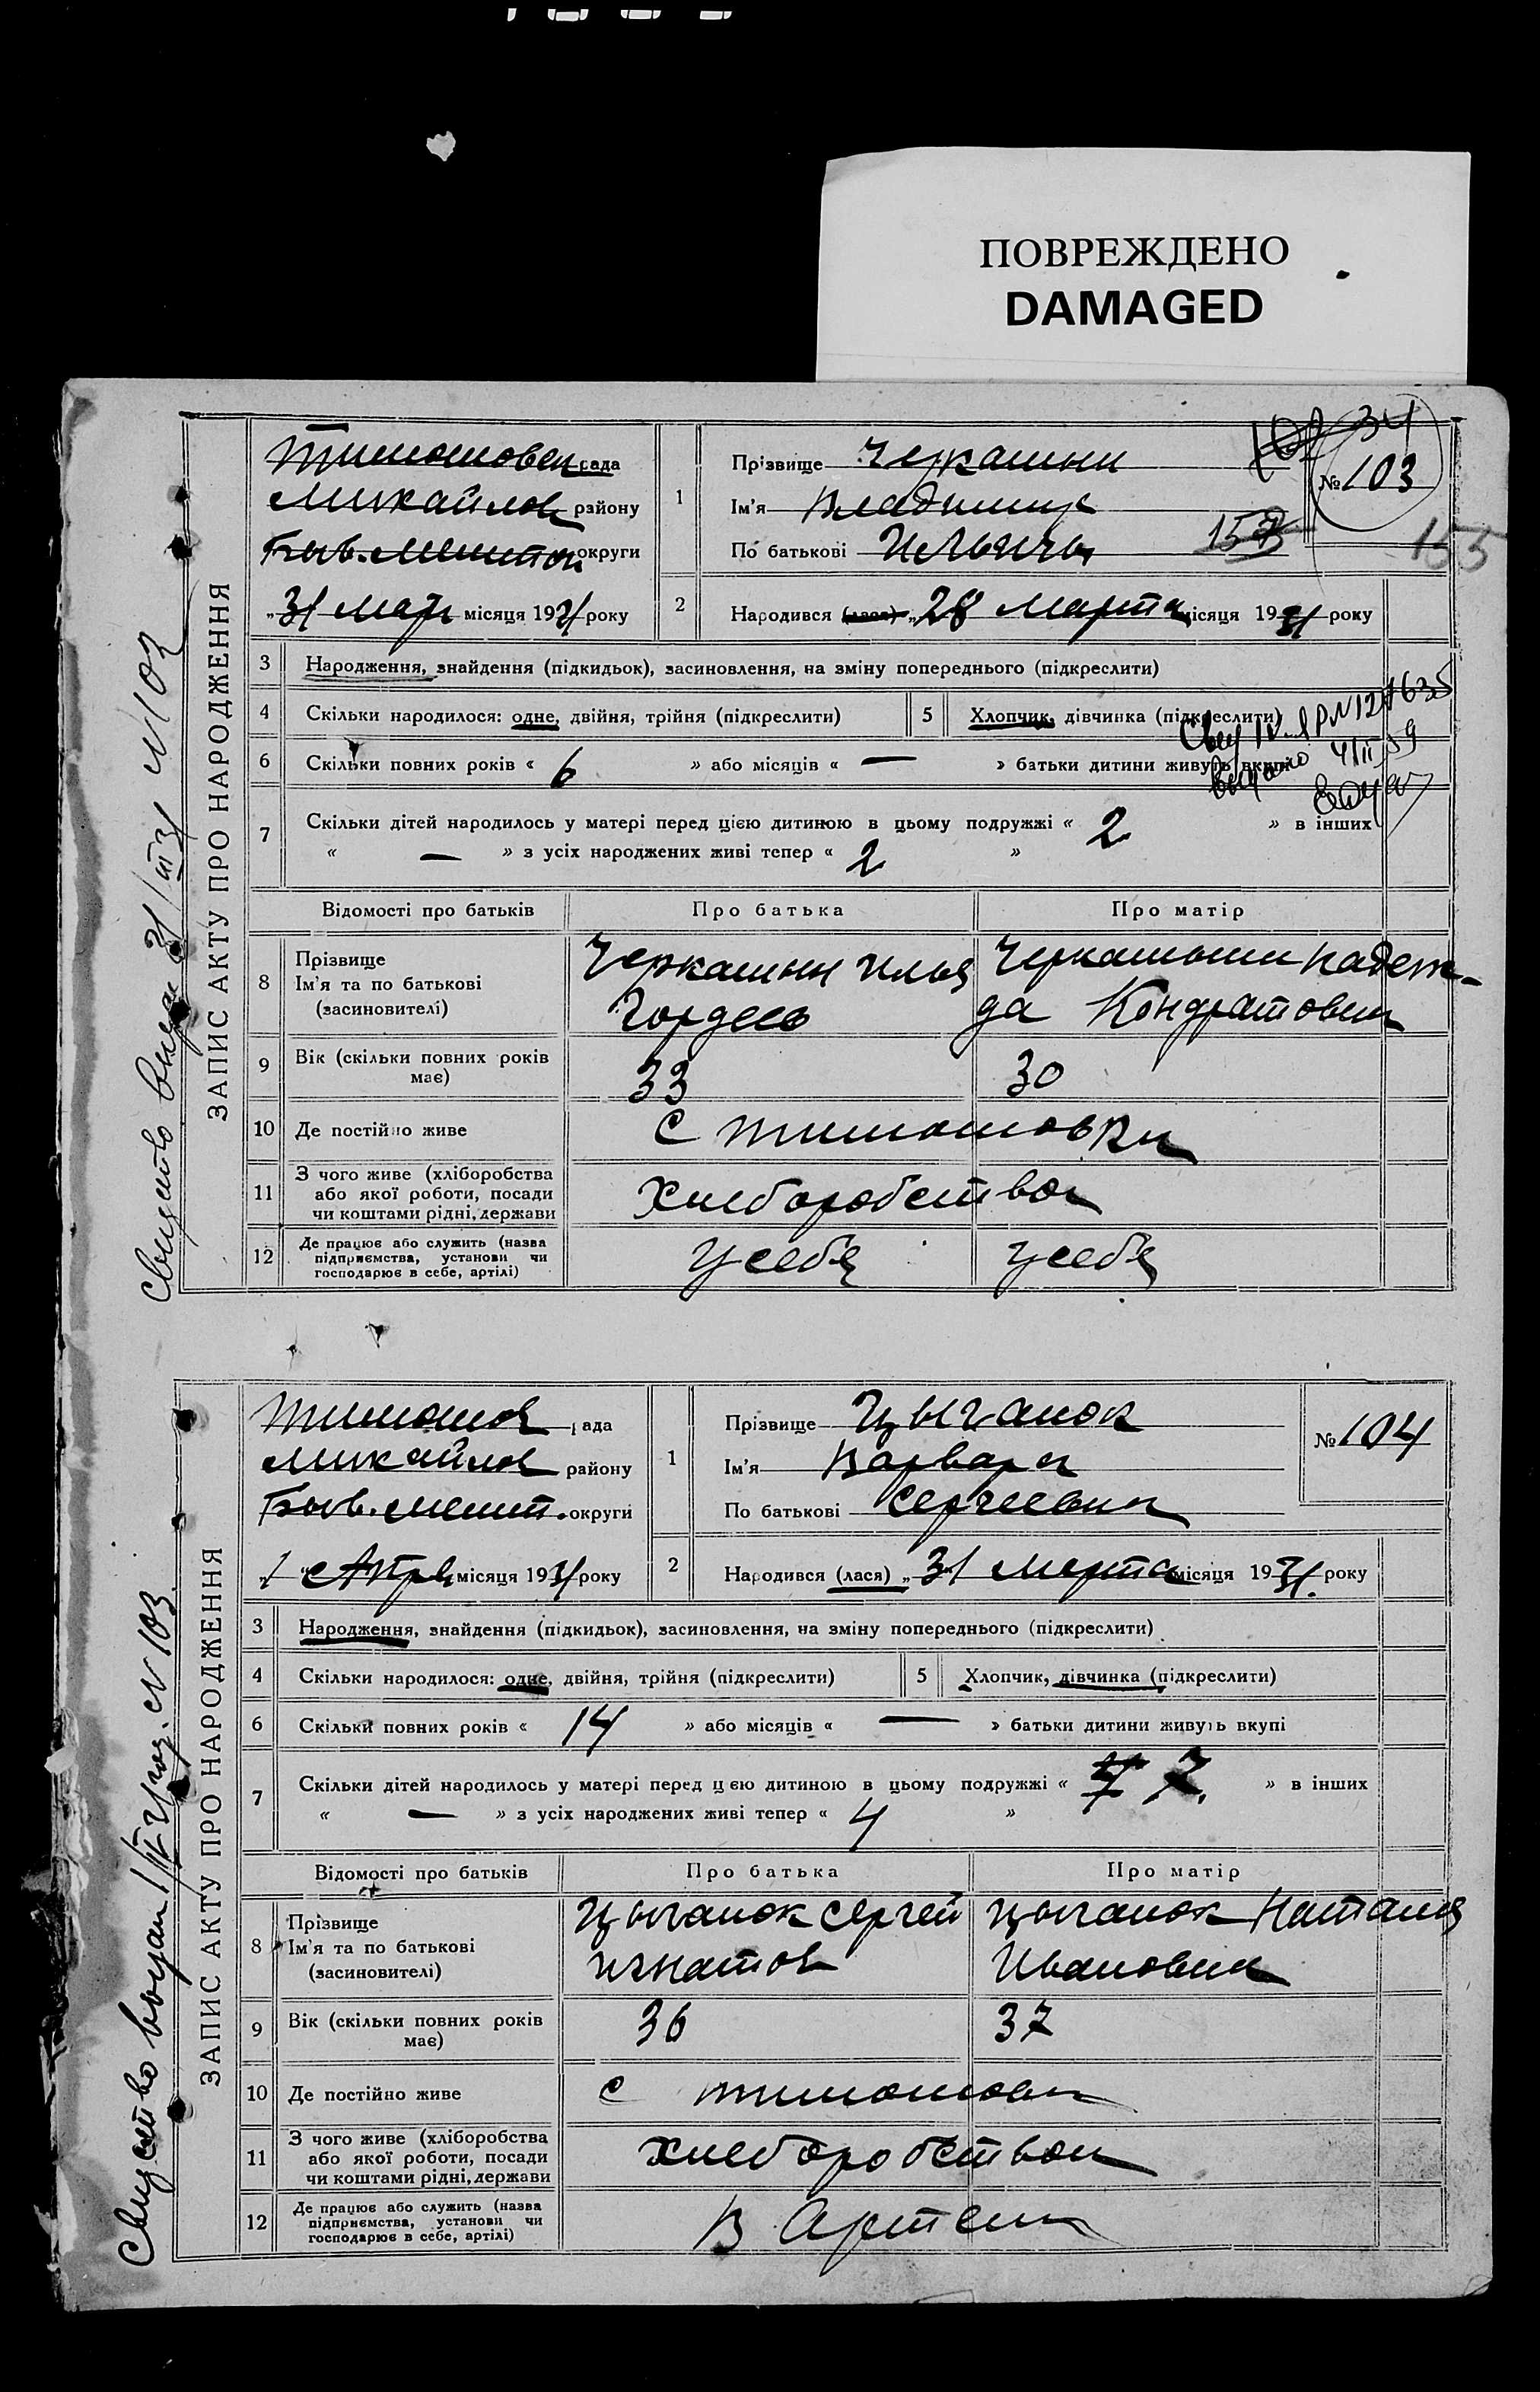 ПОВРЕЖДЕНО
DAMAGED
ЗАПИС АКТУ ПРО НАРОДЖЕННЯ
Тимошовск рада
Михайлов району
Бывш. Мелитоп. округи
„31 март місяця 1931 року
1
Прізвище Черкашин
Ім'я Владимир
По батькові Ильич
34
№ 103
157
155
2
Народився (лася) „28 марта місяця 1931 року
3 Народження, знайдення (підкидьок), засиновлення, на зміну попереднього (підкреслити)
4 Скільки народилося: одне, двійня, трійня (підкреслити)
5 Хлопчик, дівчинка (підкреслити)
6 Скільки повних років « 6 » або місяців « — » батьки дитини живуть вкупі
7 Скільки дітей народилось у матері перед цією дитиною в цьому подружжі « 2 » в інших
« — » з усіх народжених живі тепер « 2 »
Відомості про батьків Про батька Про матір
8 Прізвище
Ім'я та по батькові
(засиновителі)
Черкашин Илья
Гордеев
Черкашина Надеж-
да Кондратовна
9 Вік (скільки повних років
має)
33 30
10 Де постійно живе С Тимошовки
11 З чого живе (хліборобства
або якої роботи, посади
чи коштами рідні, держави
Хлеборобством
12 Де працює або служить (назва
підприємства, установи чи
господарює в себе, артілі)
У себя У себя
ЗАПИС АКТУ ПРО НАРОДЖЕННЯ
Тимошов рада
Михайлов району
Бывш. Мелит. округи
„1 Апрель місяця 1931 року
1
Прізвище Цыганок
Ім'я Варвара
По батькові Сергеевна
№ 104
2
Народився (лася) „31 марта місяця 1931. року
3 Народження, знайдення (підкидьок), засиновлення, на зміну попереднього (підкреслити)
4 Скільки народилося: одне, двійня, трійня (підкреслити)
5 Хлопчик, дівчинка (підкреслити)
6 Скільки повних років « 14 » або місяців « — » батьки дитини живуть вкупі
7 Скільки дітей народилось у матері перед цією дитиною в цьому подружжі « 7. » в інших
« — » з усіх народжених живі тепер « 4 »
Відомості про батьків Про батька Про матір
8 Прізвище
Ім'я та по батькові
(засиновителі)
Цыганок Сергей
Игнатов
Цыганок Наталия
Ивановна
9 Вік (скільки повних років
має)
36 37
10 Де постійно живе С Тимошовки
11 З чого живе (хліборобства
або якої роботи, посади
чи коштами рідні, держави
Хлеборобством
12 Де працює або служить (назва
підприємства, установи чи
господарює в себе, артілі)
В Артели